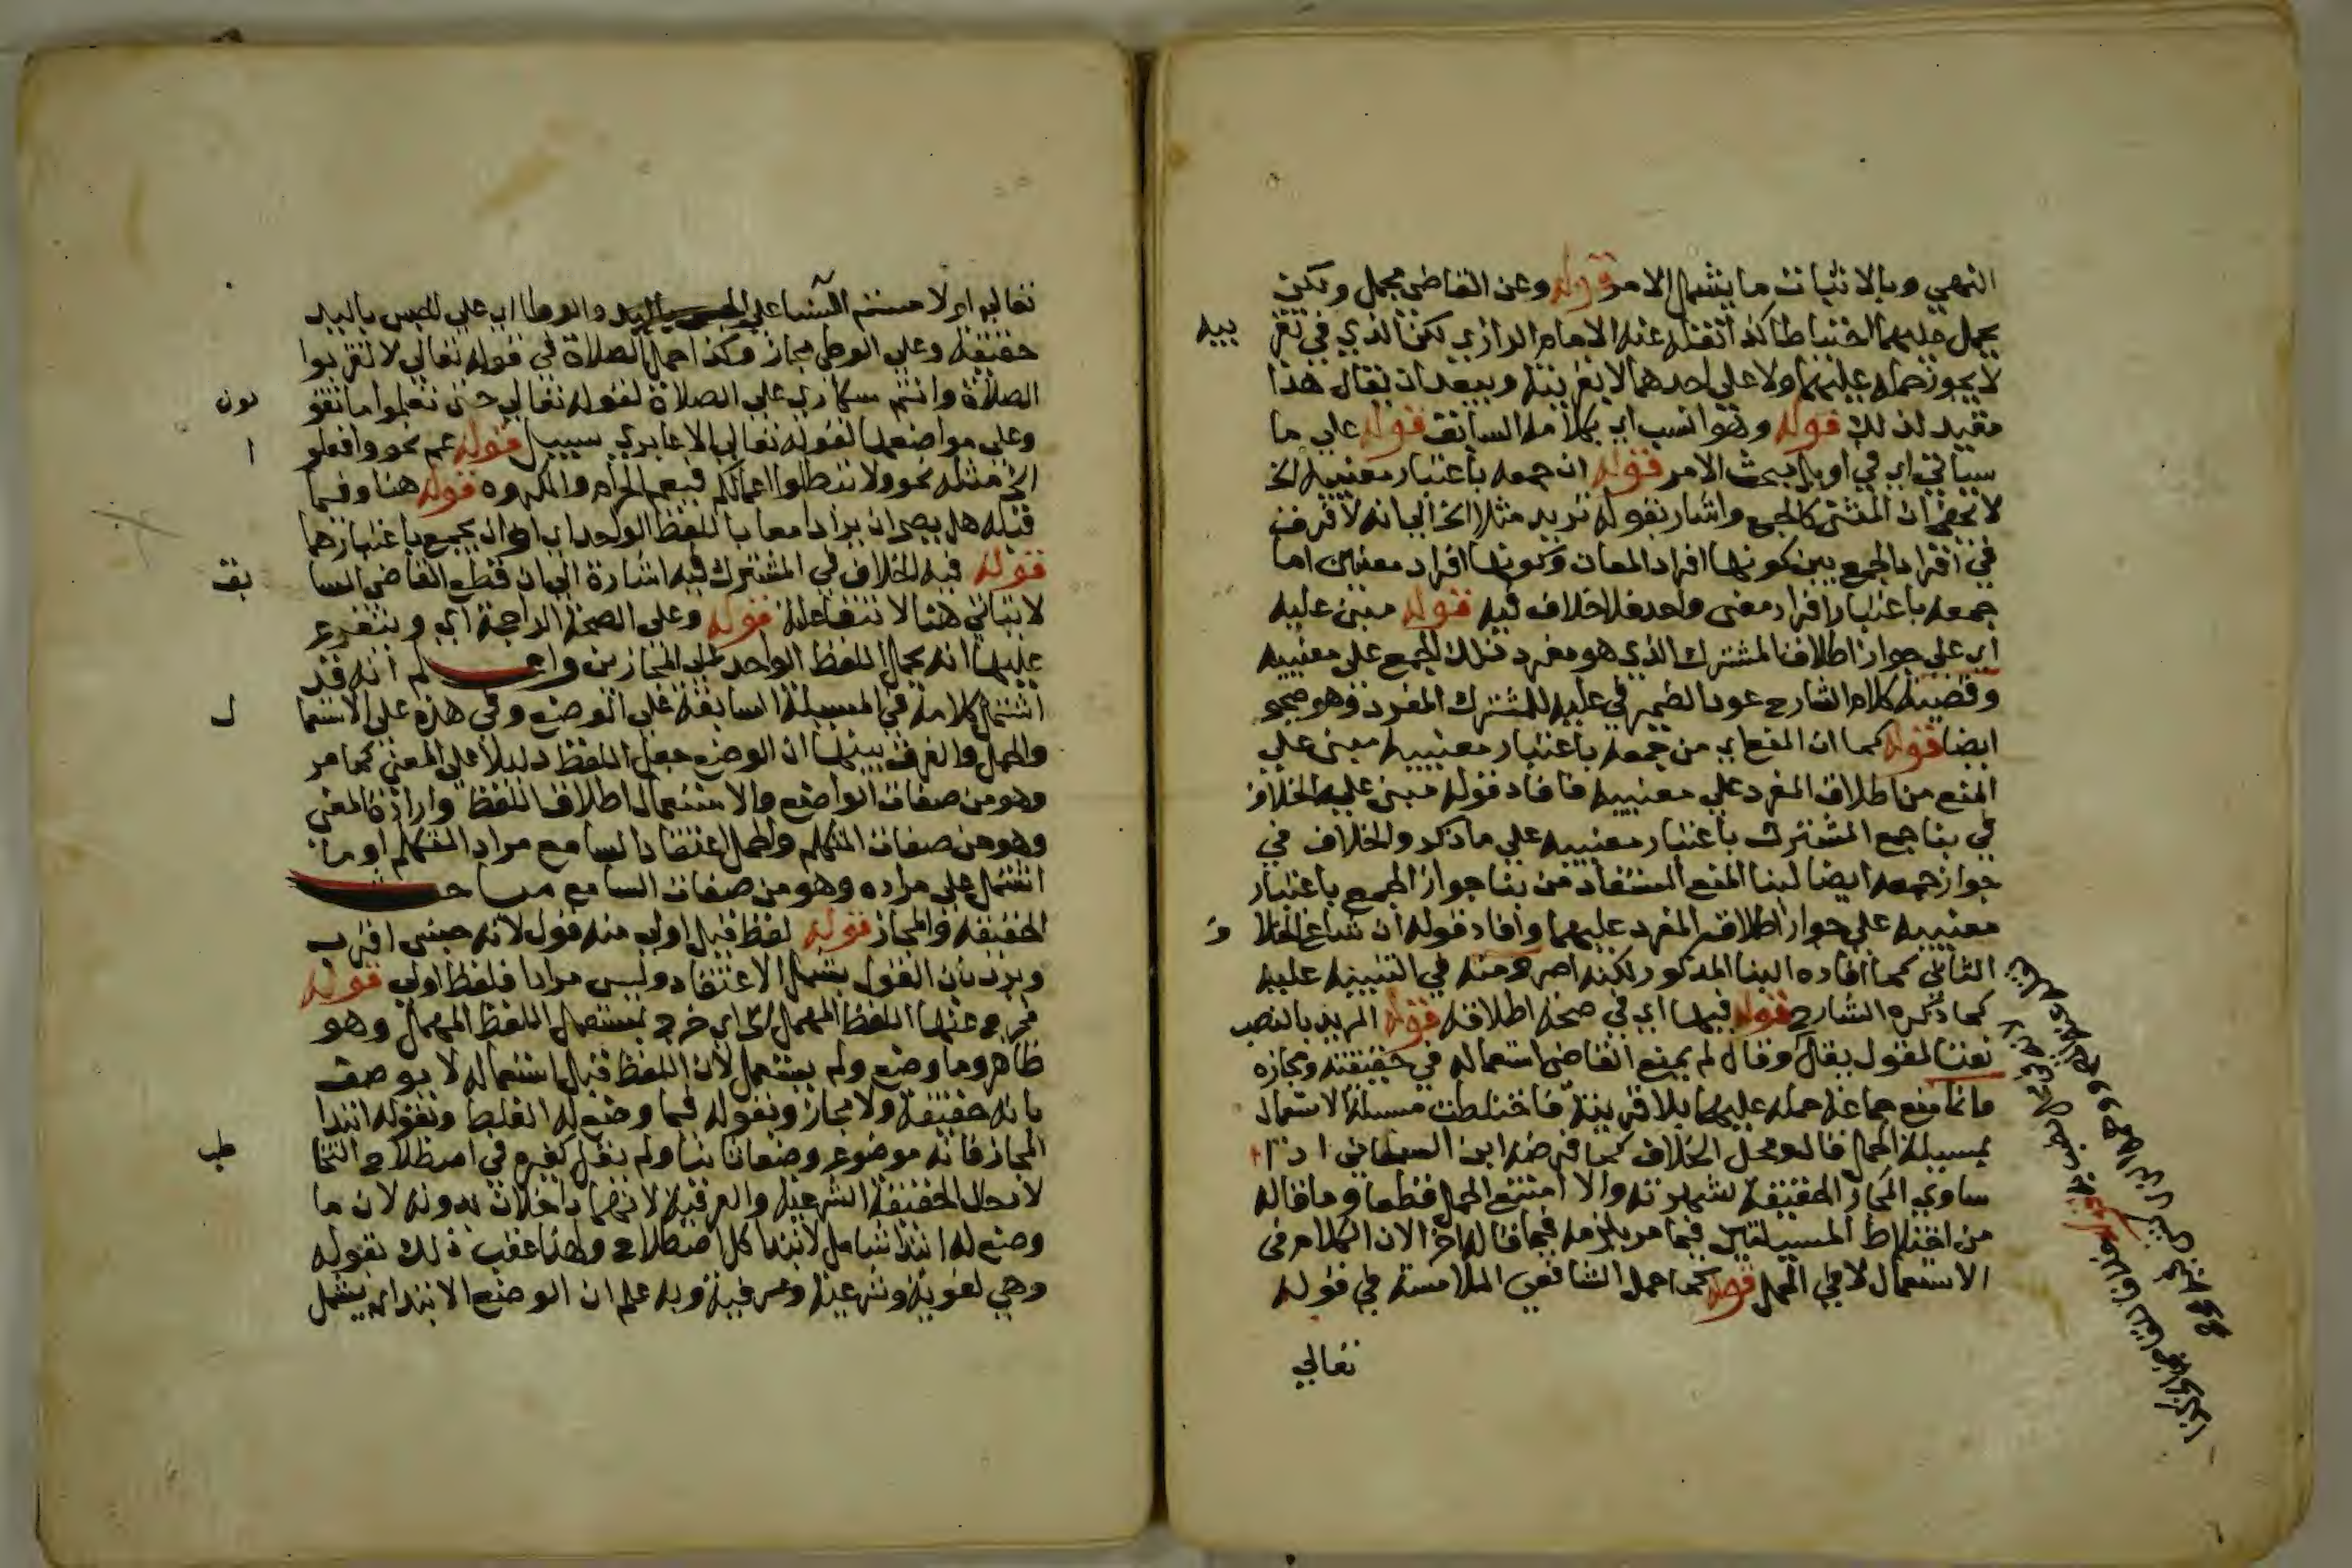 النهي وبالاثبات ما يشمل الامر قوله وعن القاضي مجمل ولكن
يحمل عليهما احتياطا كذا نقله عنه الامام الرازي لكن الذي في تقر
يبه
لا يجوز حمله عليهما ولا على احدهما الا بقرينة ويبعد ان يقال هذا
مقيد لذلك قوله وهو انسب اي بكلامه السابق قوله على ما
سياتي اي في اول مبحث الامر قوله ان جمعه باعتبار معنييه الخ
لا يخفى ان المثنى كالجمع واشار بقوله تريد مثلا الخ الى انه لا فرق
في افراد الجمع بين كونها افراد المعان وكونها افراد معنيين اما
جمعه باعتبار افراد معنى واحد فلا خلاف فيه قوله مبنى عليه
اي على جواز اطلاق المشترك الذي هو مفرد ذلك الجمع على معنييه
وقضية كلام الشارح عود الضمير في عليه للمشترك المفرد وهو صحيح
ايضا قوله كما ان المنع اي من جمعه باعتبار معنييه مبنى على
المنع من اطلاق المفرد على معنييه فافاد قوله مبنى عليه الخلاف
في بنا جمع المشترك باعتبار معنييه على ما ذكر والخلاف في
جواز جمعه ايضا لبنا المنع المستفاد من بنا جواز الجمع باعتبار
معنييه على جواز اطلاق المفرد عليهما وافاد قوله ان ساغ الخلا
ف
الثاني كما افاده البنا المذكور لكنه اصرح منه في التنبيه عليه
كما ذكره الشارح قوله فيهما اي في صحة اطلاقه قوله المريد بالنصب
نعتا لمقول يقال وقال لم يمنع القاضي استعماله في حقيقته ومجازه
وانما منع جماعة حمله عليهما بلا قرينة فاختلطت مسيلة الاستعمال
بمسيلة الحمل قال ومحل الخلاف كما فرضه ابن السمعاني اذا
ساوى المجاز الحقيقة لشهرته والا امتنع الحمل قطعا وما قاله
من اختلاط المسيلتين فيما مر يلزمه فيما قاله اخرا لان الكلام في
الاستعمال لا في الحمل قوله كما حمل الشافعي الملامسة في قوله
تعالى
تعالى او لامستم النسا على والوطا اي على الجس باليد
حقيقة وعلى الوطي مجاز وكذا حمل الصلاة في قوله تعالى لا تقربوا
الصلاة وانتم سكارى على الصلاة لقوله تعالى حتى تعلموا ما تقو
لون
وعلى مواضعها لقوله تعالى الا عابري سبيل قوله عم نحو وافعلو
ا
الخ مثله نحو ولا تبطلوا اعمالكم فيعم الحرام والمكروه قوله هنا وفيما
قبله هل يصح ان يرادا معا باللفظ الواحد اي او ان يجمع باعتبارهما
قوله فيه الخلاف في المشترك فيه اشارة الى ان قطع القاضي السا
بق
لا يتاتي هنا لانتفاعلته قوله وعلى الصحة الراجحة اي ويتفرع
عليها انه يحمل اللفظ الواحد على المجازين واعلم انه قد
اشتمل كلامه في المسيلة السابقة على الوضع وفي هذه على الاستعما
ل
والحمل والفرق بينها ان الوضع جعل اللفظ دليلا على المعنى كما مر
وهو من صفات الواضع والاستعمال اطلاق اللفظ وارادة المعنى
وهو من صفات المتكلم والحمل اعتقاد السامع مراد المتكلم او ما
اشتمل على مراده وهو من صفات السامع مباحث
الحقيقة والمجاز قوله لفظ قيل اولى منه قول لانه جنس اقرب
ويرد بان القول يشمل الاعتقاد وليس مرادا فلفظ اولى قوله
فخرج عنها اللفظ المهمل الخ اي خرج بمستعمل اللفظ المهمل وهو
ظاهر وما وضع ولم يستعمل لان اللفظ قبل استعماله لا يوصف
بانه حقيقة ولا مجاز وبقوله فيما وضع له الغلط وبقوله ابتدا
المجاز فانه موضوع وضعا ثانيا ولم يقل كغيره في اصطلاح التخا
طب
لادخال الحقيقة الشرعية والعرفية لانهما داخلان بدونه لان ما
وضع له ابتدا شامل لابتدا كل اصطلاح ولهذا عقب ذلك بقوله
وهي لغوية وشرعية وعرفية وبه علم ان الوضع الابتداي يشمل